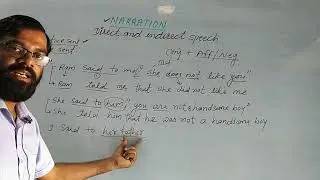 NARRATION
Direct and indirect speech
Conj + Aff/Neg
that
Ram said to me," she does not like you"
Ram told me that she did not like me
She said to him," you are not handsome boy"
She told him that he was not a handsome boy
I said to her father